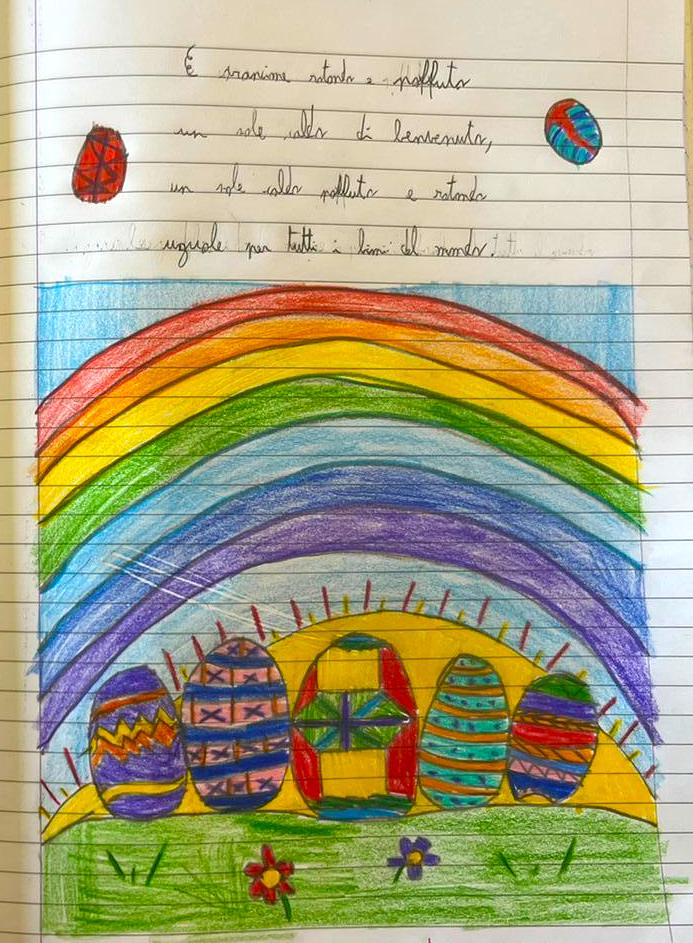 È arancione rotondo e paffuto
un sole caldo di benvenuto,
un sole caldo paffuto e rotondo
uguale per tutti i bimbi del mondo.